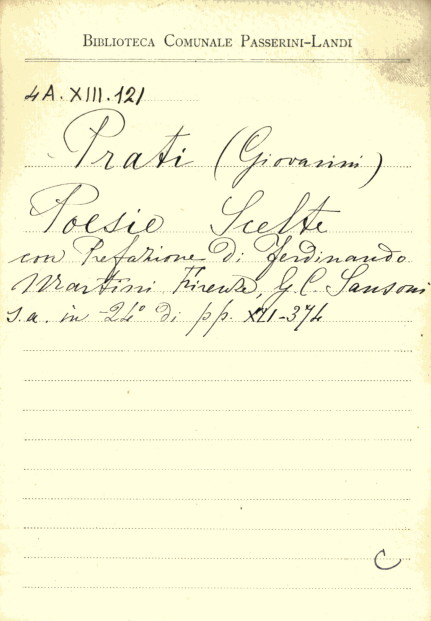 BIBLIOTECA COMUNALE PASSERINI-LANDI
4A. XIII. 121
Prati (Giovanni)
Poesie Scelte
con Prefazione di Ferdinando
Martini Firenze, G. C. Sansoni
s.a. in 24° di pp. XVI-374
C